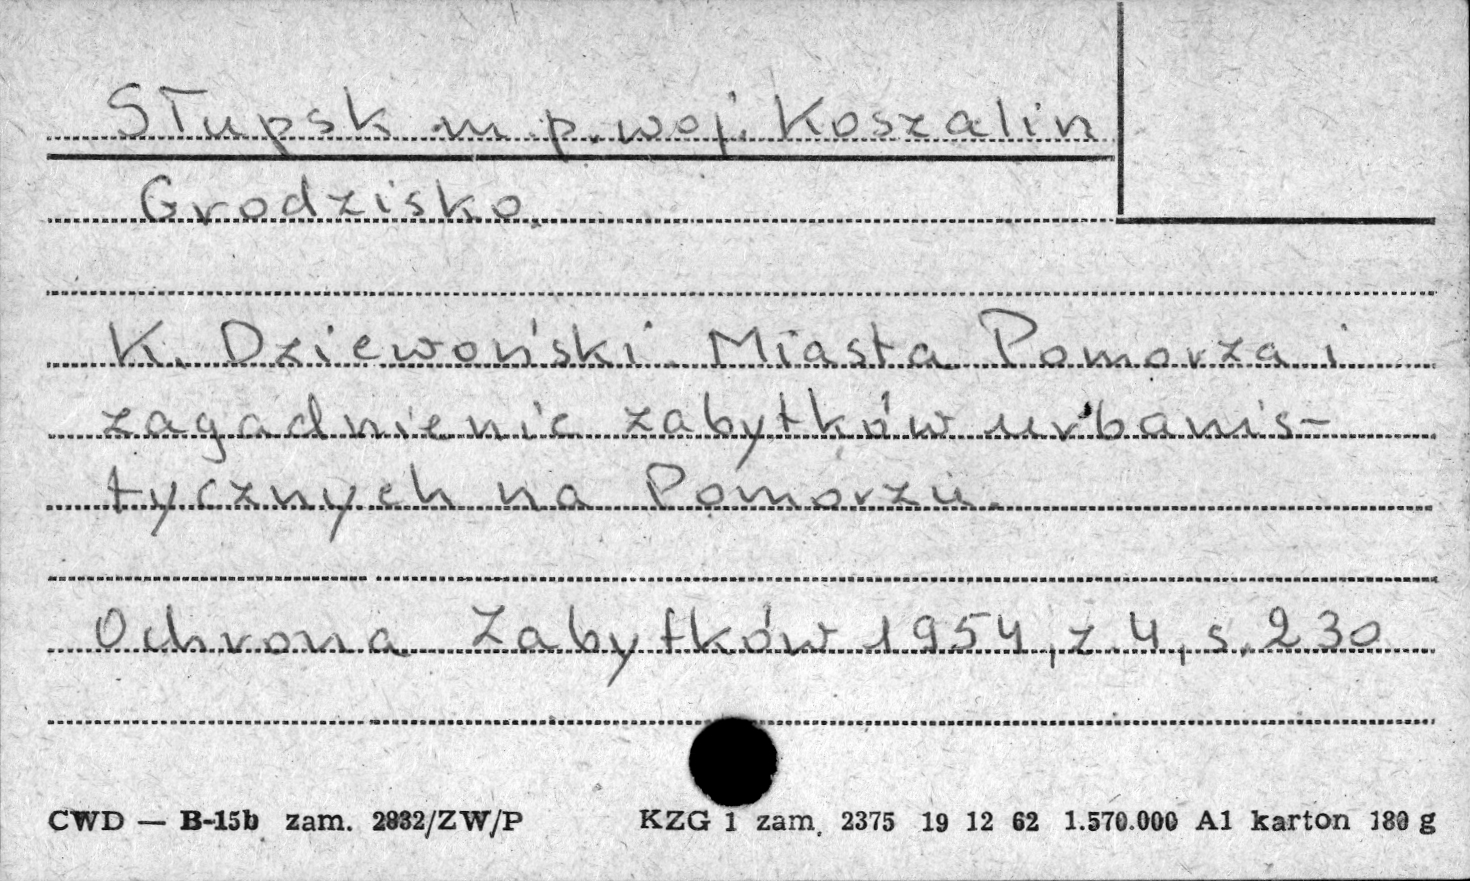 Słupsk m. p. woj. Koszalin
Grodzisko.
K. Dziewoński. Miasta Pomorza i
zagadnienie zabytków urbanis-
tycznych na Pomorzu.
Ochrona Zabytków 1954, z. 4, s. 230
CWD — B-15b zam. 2832/ZW/P KZG 1 zam. 2375 19 12 62 1.570.000 A1 karton 180 g